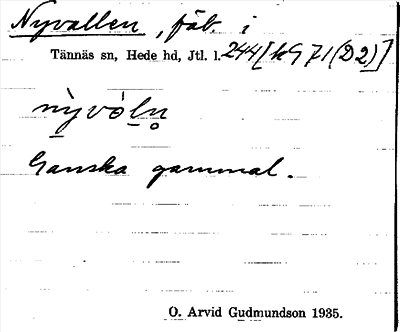 Nyvallen, fäb. i
Tännäs sn, Hede hd, Jtl. l. 244 [kG 71 (D2)]
nỳvóln̥
Ganska gammal.
O. Arvid Gudmundson 1935.